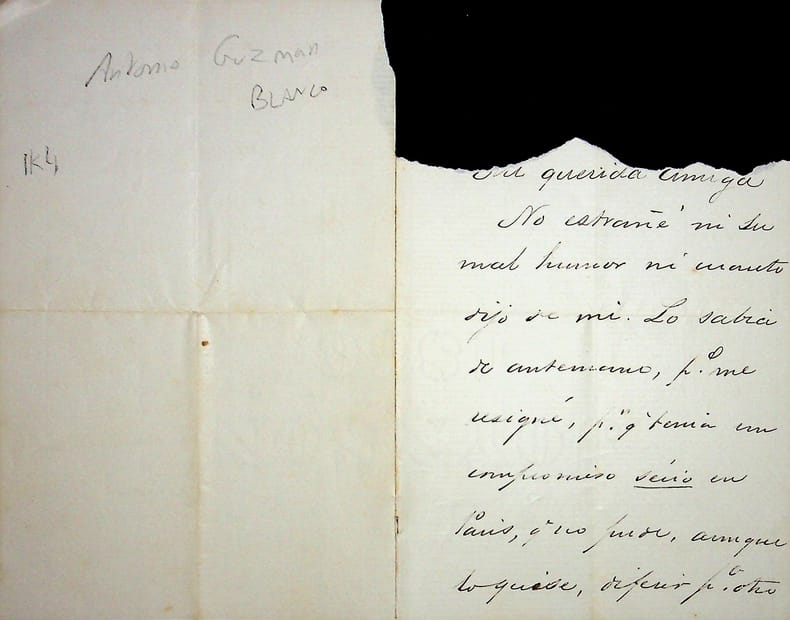 Antonio Guzman
BLANCO
1K4
querida amiga
No estrañé ni su
mal humor ni cuanto
dijo de mi. Lo sabia
de antemano, p.º me
resigné, p.r q.e tenia un
compromiso sério en
Paris, q.e no pude, aunque
lo quise, diferir p.a otro